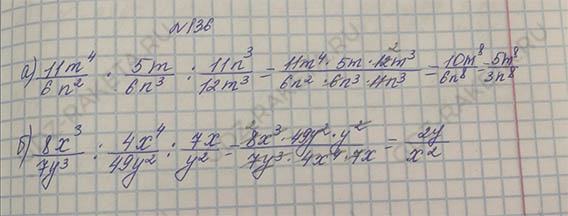 №136
а) 11m⁴/6n² · 5m/6n³ : 11n³/12m³ = 11m⁴ · 5m · 12m³/6n² · 6n³ · 11n³ = 10m⁸/6n⁸ = 5m⁸/3n⁸
б) 8x³/7y³ : 4x⁴/49y² : 7x/y² = 8x³ · 49y² · y²/7y³ · 4x⁴ · 7x = 2y/x²